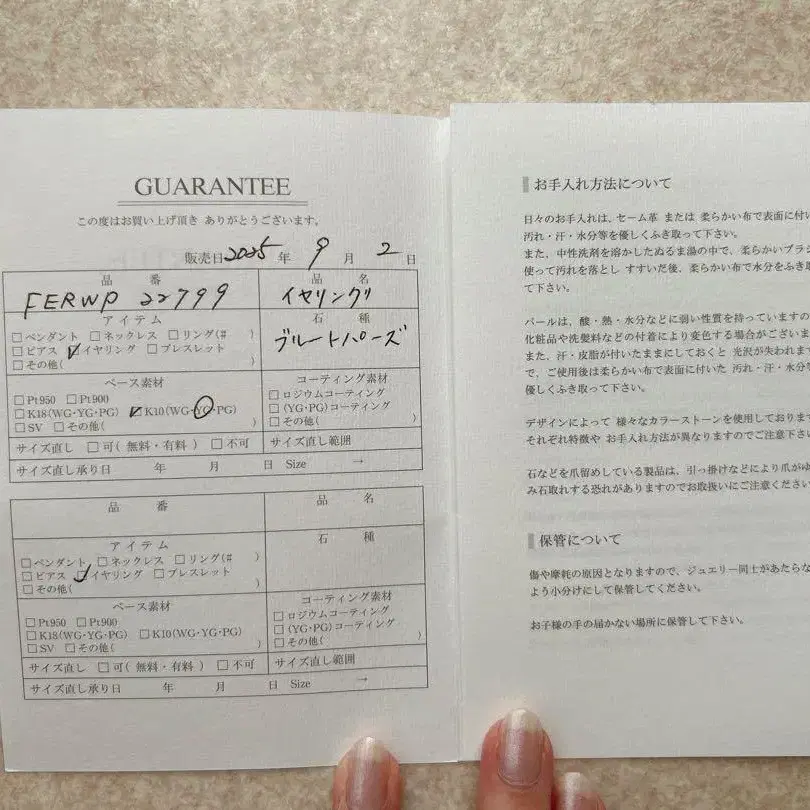 GUARANTEE
この度はお買い上げ頂き ありがとうございます。
販売日 2025 年 9 月 2 日
品 番 品 名
FERWP 22799 イヤリング
アイテム 石 種
□ペンダント □ネックレス □リング(# )
□ピアス ☑イヤリング □ブレスレット
□その他( )
ブルートパーズ
ベース素材 コーティング素材
□Pt950 □Pt900
□K18(WG・YG・PG) ☑K10(WG・YG・PG)
□SV □その他( )
□ロジウムコーティング
□(YG・PG)コーティング
□その他( )
サイズ直し □可(無料・有料) □不可 サイズ直し範囲
サイズ直し承り日 年 月 日 Size →
品 番 品 名
アイテム 石 種
□ペンダント □ネックレス □リング(# )
□ピアス ☑イヤリング □ブレスレット
□その他( )
ベース素材 コーティング素材
□Pt950 □Pt900
□K18(WG・YG・PG) □K10(WG・YG・PG)
□SV □その他( )
□ロジウムコーティング
□(YG・PG)コーティング
□その他( )
サイズ直し □可(無料・有料) □不可 サイズ直し範囲
サイズ直し承り日 年 月 日 Size →
お手入れ方法について
日々のお手入れは、セーム革 または 柔らかい布で表面に付い
汚れ・汗・水分等を優しくふき取って下さい。
また、中性洗剤を溶かしたぬるま湯の中で、柔らかいブラシ
使って汚れを落とし すすいだ後、柔らかい布で水分をふき取
て下さい。
パールは、酸・熱・水分などに弱い性質を持っていますの
化粧品や洗髪料などの付着により変色する場合がございま
また、汗・皮脂が付いたままにしておくと 光沢が失われます
で、ご使用後は柔らかい布で表面に付いた 汚れ・汗・水分
優しくふき取って下さい。
デザインによって 様々なカラーストーンを使用しております
それぞれ特徴や お手入れ方法が異なりますのでご注意下さい
石などを爪留めしている製品は、引っ掛けなどにより爪がゆ
み石取れする恐れがありますのでお取扱いにご注意ください
保管について
傷や摩耗の原因となりますので、ジュエリー同士があたらな
よう小分けにして保管してください。
お子様の手の届かない場所に保管して下さい。